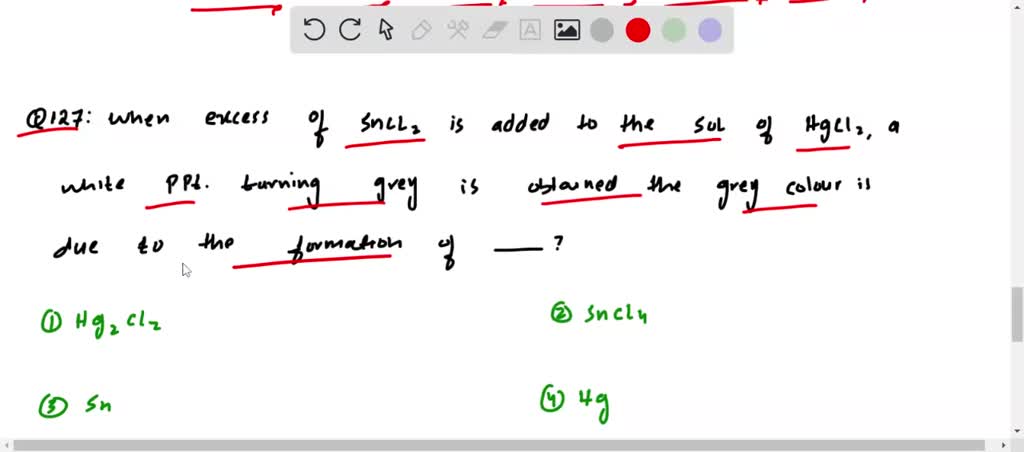 Q127: when excess of SnCl2 is added to the sol of HgCl2, a
white PPt. turning grey is obtained the grey colour is
due to the formation of ___ ?
① Hg2Cl2
② SnCl4
③ Sn
④ Hg